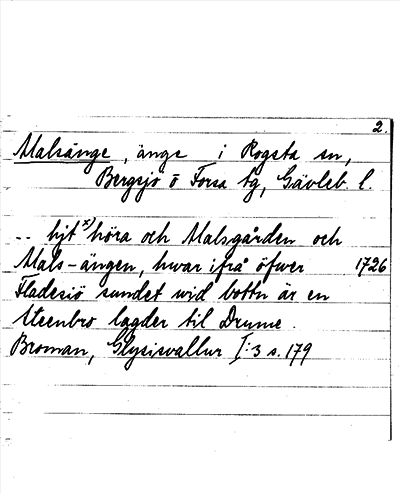 2.
Malsänge, änge i Rogsta sn,
Bergsjö o Forsa tg, Gävleb. l.
.. hjt x) höra och Malsgården och
Mals-ängen, hwar ifrå öfwer 1726
Fladesiö sundet wid bottn är en
Steenbro lagder til Drume.
Broman, Glysisvallur I:3 s. 179